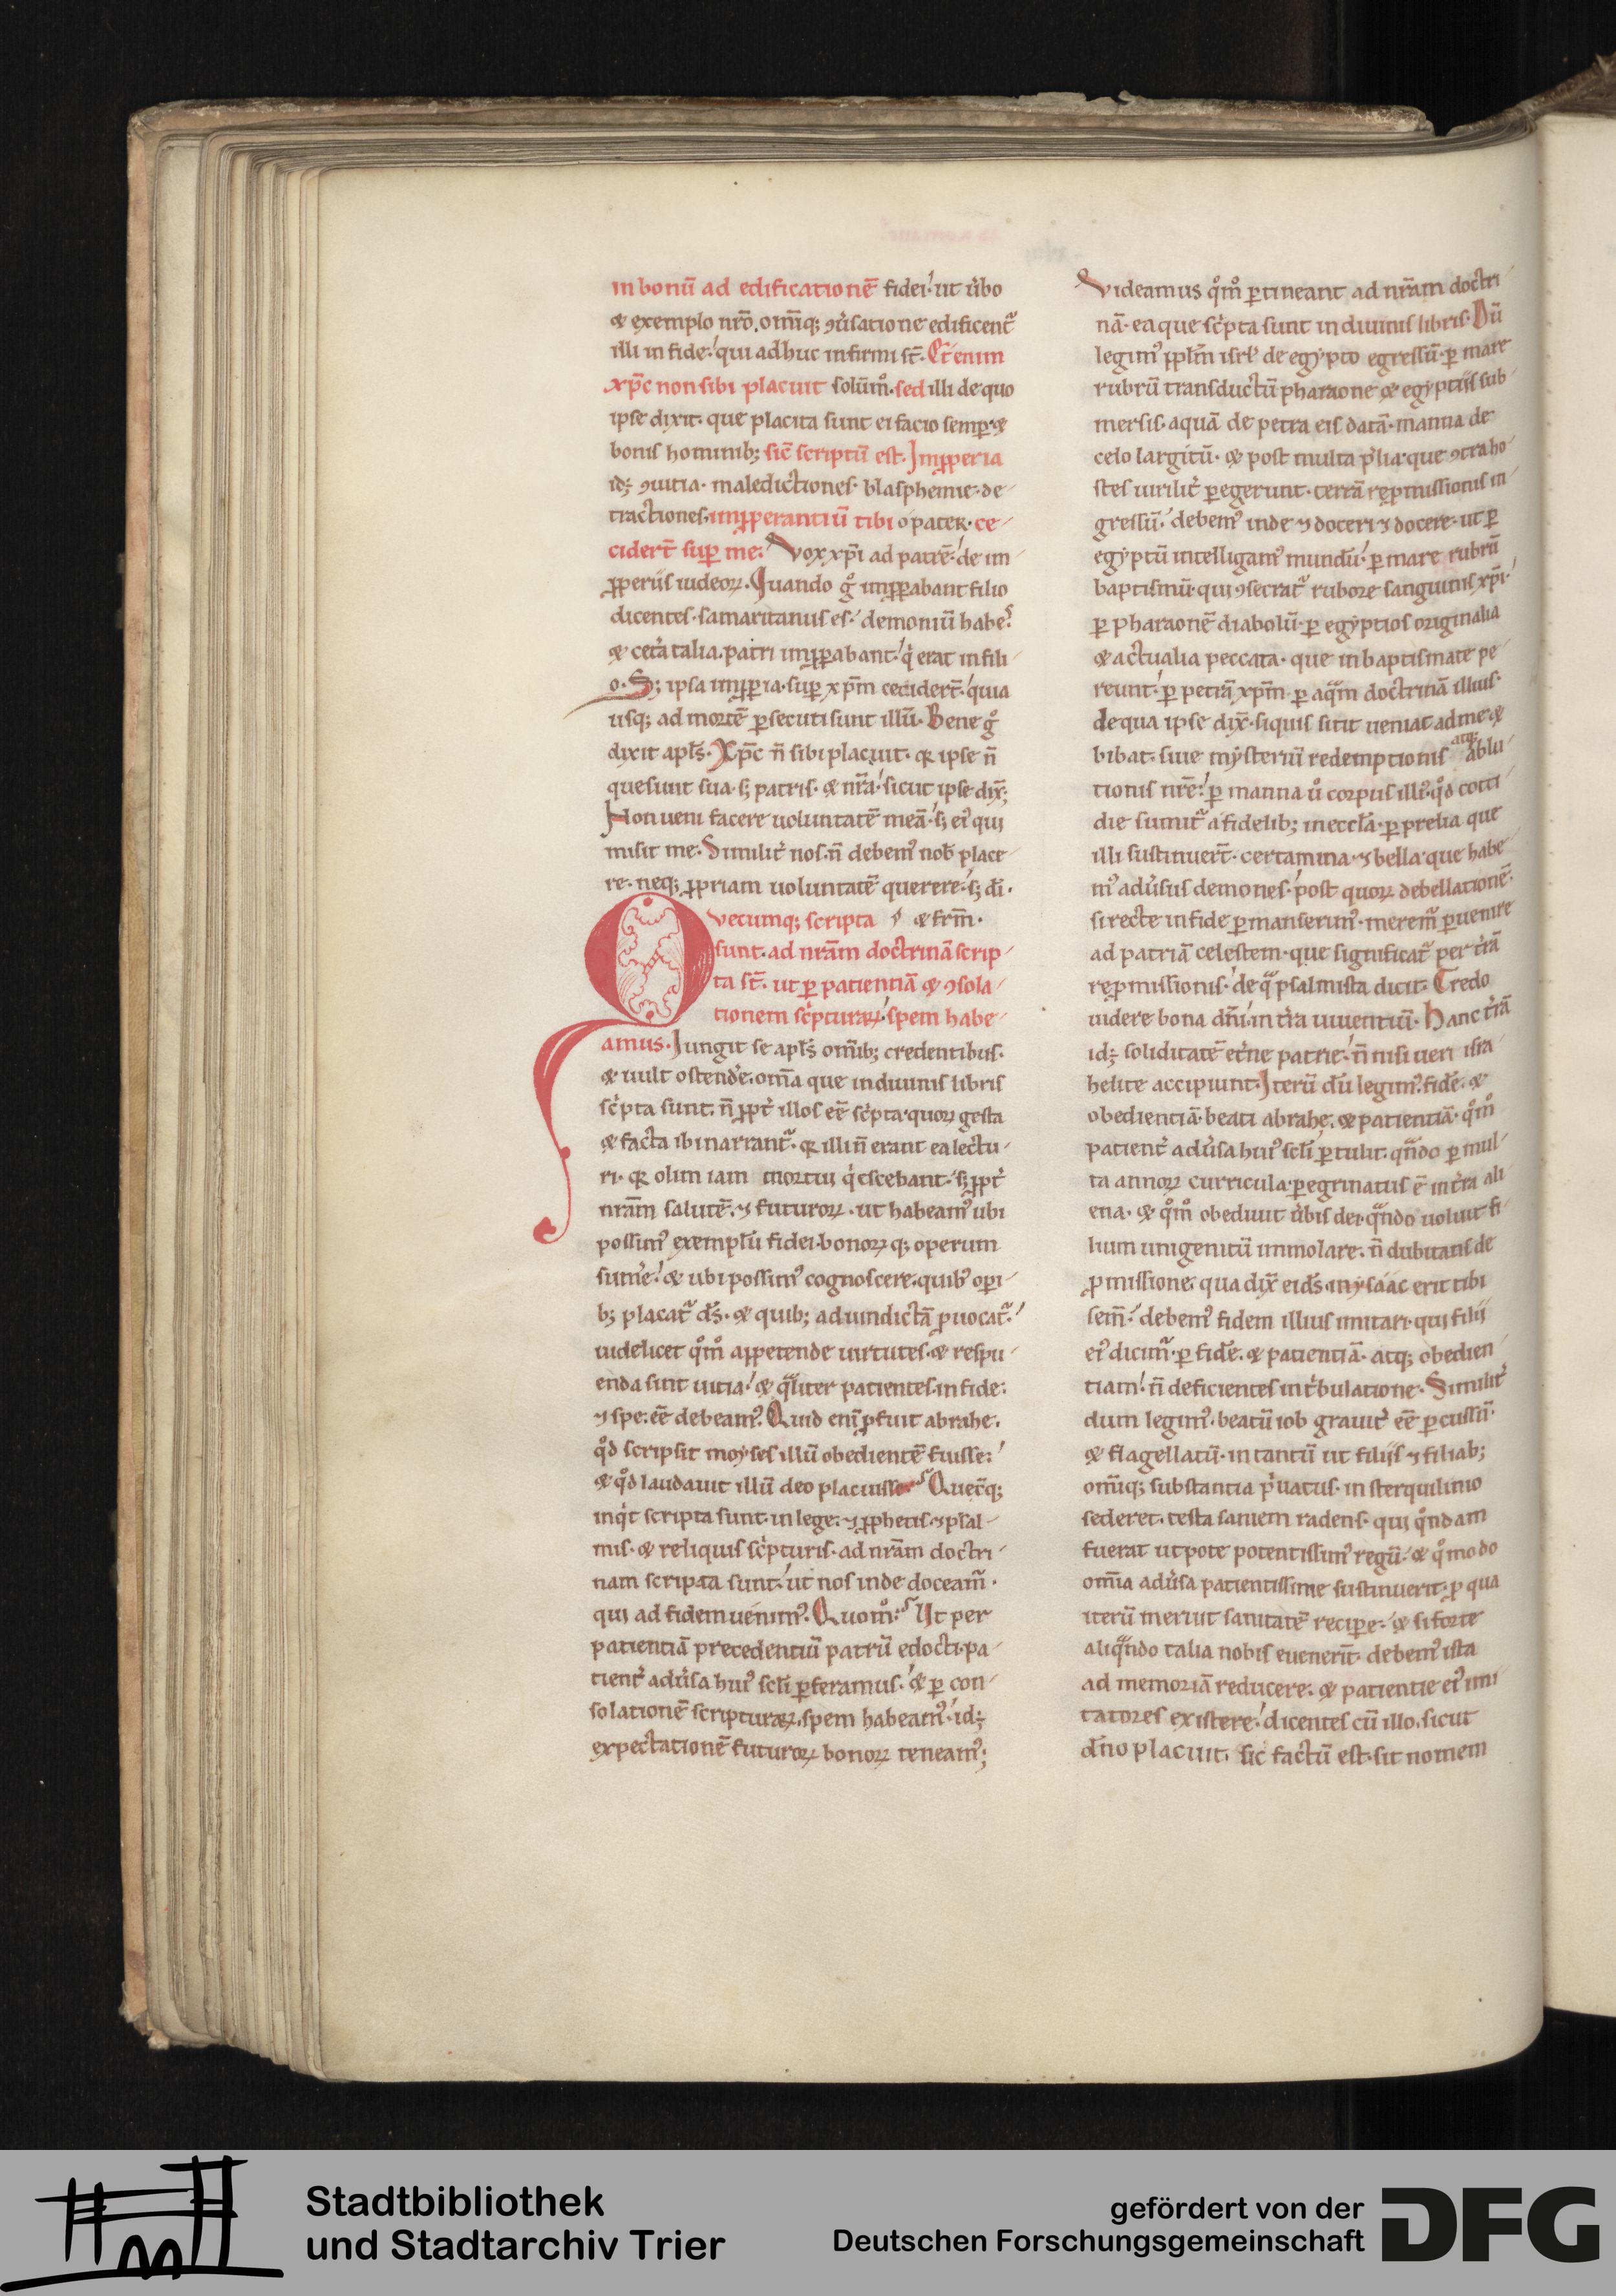 in bonū ad edificationē fidei. ut ůbo
& exemplo nr̄o, om̄iq; ꝯůsatione edificent᷑
illi in fide. qui adhuc infirmi st̄. Et̄enim
xp̄c non sibi placuit solūm̊. sed illi de quo
ipse dixit. que placita sunt ei facio semꝑ. &
bonis hominib; sic̄ scriptū est. Imꝓperia
id; ꝯuitia. maledictiones. blasphemie. de-
tractiones. imꝓperantiū tibi o pater. ce-
ciderт̄ suꝑ me. Vox xp̄i ad patrē. de im-
ꝓperiis iudeoꝝ. Quando g̊ imꝓꝑabant filio
dicentes. samaritanus es. demoniū habes.
& cet̄a talia. patri imꝓꝑabant. q̇ erat in fili-
o. S; ipsa imꝓꝑia. suꝑ xp̄m cecidert̄. quia
usq; ad mortē ꝑsecuti sunt illū. Bene g̊
dixit apl̄s. Xp̄c n̄ sibi placuit. qꝛ ipse n̄
que sunt sua. s; patris. & nr̄a. sicut ipse dix̄;
Non ueni facere uoluntatē meā. s; ei' qui
misit me. Similit̄ nos. n̄ debem' nob̄ place-
re. neq; ꝓpriam uoluntatē querere. s; di.
Qvecumq; scripta & fr̄m.
sunt. ad nr̄am doctrinā scrip-
ta st̄. ut ꝑ patientiā & ꝯsola-
tionem sc̓pturaꝝ. spem habe-
amus. Iungit se apl̄s om̄ib; credentibus.
& uult ostend̄e. om̄a que in diuinis libris
sc̓pta sunt. n̄ ꝓpt̄ illos eē sc̓pta. quoꝝ gesta
& facta ibi narrant᷑. qꝛ illi n̄ erant ea lectu-
ri. qꝛ olim iam mortui q̇escebant. s; ꝓpt̄
nr̄am salutē. ⁊ futuroꝝ. ut habeam' ubi
possim' exemplū fidei. bonoꝝq; operum
sum̄e. & ubi possim' cognoscere. quib' opi-
b; placat᷑ ds̄. & quib; ad uindictā ꝓuocat᷑.
uidelicet q̊m̊ appetende uirtutes. & respu-
enda sint uitia. & qͣliter patientes. in fide.
⁊ spe. eē debeam'. Quid eni ꝓfuit abrahe.
q̊d scripsit moyses illū obedientē fuisse.
& q̊d laudauit illū deo placuisse. Quec̄q;
inq̇t scripta sunt. in lege. ⁊ ꝓphetis. ⁊ psal-
mis. & reliquis sc̓pturis. ad nr̄am doctri-
nam scripta sunt. ut nos inde doceam̄.
qui ad fidem uenim'. Quom̊. Ut per
patientiā precedentiū patrū edocti. pa-
tient̄ adůsa hui' scl̄i ꝑferamus. & ꝑ con-
solationē scripturaꝝ. spem habeam'. id;
expectationē futuroꝝ bonoꝝ teneam';
Videamus q̊m̊ ꝑtineant ad nr̄am doctri-
nā. ea que sc̓pta sunt in diuinis libris. Dū
legim' ppl̄m isrl̄ de egypto egressū. ꝑ mare
rubrū transductū pharaone & egyptiis sub-
mersis. aquā de petra eis datā. manna de
celo largitū. & post multa p̄lia. que ꝯtra ho-
stes uirilit̄ ꝑegerunt. terrā reꝓmissionis in-
gressū. debem' inde ⁊ doceri ⁊ docere. ut ꝑ
egyptū intelligam' mundū. ꝑ mare rubrū
baptismū. qui ꝯsecrat᷑ rubore sanguinis xp̄i.
ꝑ pharaonē diabolū. ꝑ egyptios originalia
& actualia peccata. que in baptismate pe-
reunt. ꝑ petrā xp̄m. ꝑ aqͣm doctrinā illius.
de qua ipse dix̄. siquis sitit ueniat ad me &
bibat. siue mysteriū redemptionis atq; ablu-
tionis nr̄e. ꝑ manna ů corpus illi'. q̊d coti-
die sumit᷑ a fidelib; in eccl̄a. ꝑ prelia que
illi sustinuert̄. certamina. ⁊ bella. que habe-
m' adůsus demones. post quoꝝ debellationē.
si recte in fide ꝑmanserim'. merem̄ ꝑuenire
ad patriā celestem. que significat᷑ per t̄rā
reꝓmissionis. de qͣ psalmista dicit. Credo
uidere bona dn̄i. in t̄ra uiuentiū. Hanc t̄rā
id; soliditatē et̄ne patrie. n̄ nisi ueri isra-
helite accipiunt. Iterū dū legim'. fidē. &
obedientiā. beati abrahe. & patientiā. q̊m̊
patient̄ adůsa hui' scl̄i ꝑtulit. qͣndo ꝑ mul-
ta annoꝝ curricula. ꝑegrinatus ē in t̄ra ali-
ena. & q̊m̊ obediuit ůbis dei. qͣndo uoluit fi-
lium unigenitū immolare. n̄ dubitans de
ꝓmissione. qua dix̄ ei ds̄. in ysaac erit tibi
sem̄. debem' fidem illius imitari. qui filii
ei' dicim̄. ꝑ fidē. & patientiā. atq; obedien-
tiam. n̄ deficientes in t̓bulatione. Similit̄
dum legim'. beatū iob grauit̄ eē ꝑcussū.
& flagellatū. in tantū ut filiis ⁊ filiab;
om̄iq; substantia p̓uatus. in sterquilinio
sederet. testa saniem radens. qui qͦndam
fuerat utpote potentissim' regū. & q̊modo
om̄ia adůsa patientissime sustinuerit. ꝓ qua
iterū meruit sanitatē recipe. & si forte
aliqͣndo talia nobis euenerīt. debem' ista
ad memoriā reducere. & patientie ei' imi-
tatores existere. dicentes cū illo. sicut
dn̄o placuit. sic factū est. sit nomem
Stadtbibliothek
und Stadtarchiv Trier
gefördert von der
Deutschen Forschungsgemeinschaft
DFG